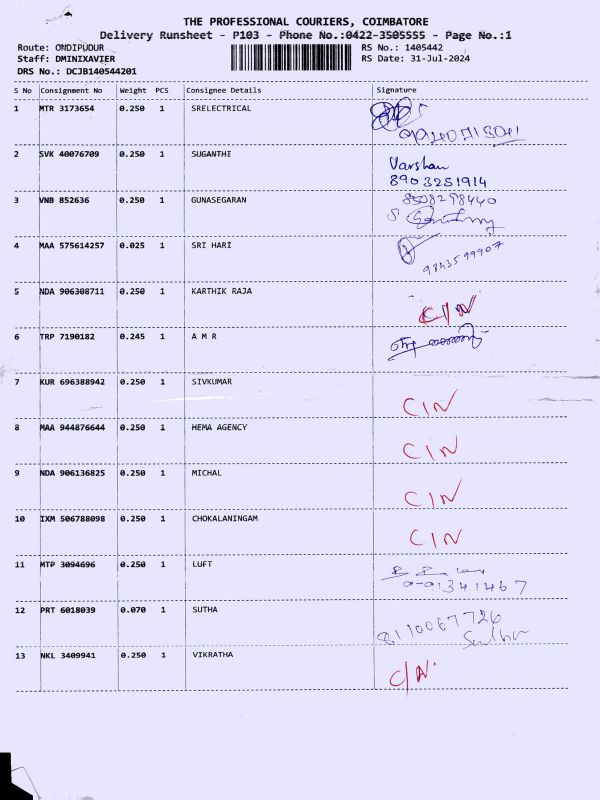 THE PROFESSIONAL COURIERS, COIMBATORE
Delivery Runsheet - P103 - Phone No.:0422-3505555 - Page No.:1
Route: ONDIPUDUR RS No.: 1405442
Staff: DMINIXAVIER RS Date: 31-Jul-2024
DRS No.: DCJB140544201
S No Consignment No Weight PCS Consignee Details Signature
1 MTR 3173654 0.250 1 SRELECTRICAL
2 SVK 40076709 0.250 1 SUGANTHI Varshan
8903251914
3 VNB 852636 0.250 1 GUNASEGARAN 8508298440
4 MAA 575614257 0.025 1 SRI HARI
9843599907
5 NDA 906308711 0.250 1 KARTHIK RAJA C/N
6 TRP 7190182 0.245 1 A M R
7 KUR 696388942 0.250 1 SIVKUMAR C/N
8 MAA 944876644 0.250 1 HEMA AGENCY C/N
9 NDA 906136825 0.250 1 MICHAL C/N
10 IXM 506788098 0.250 1 CHOKALANINGAM C/N
11 MTP 3094696 0.250 1 LUFT
12 PRT 6018039 0.070 1 SUTHA 8110067726
13 NKL 3409941 0.250 1 VIKRATHA C/N